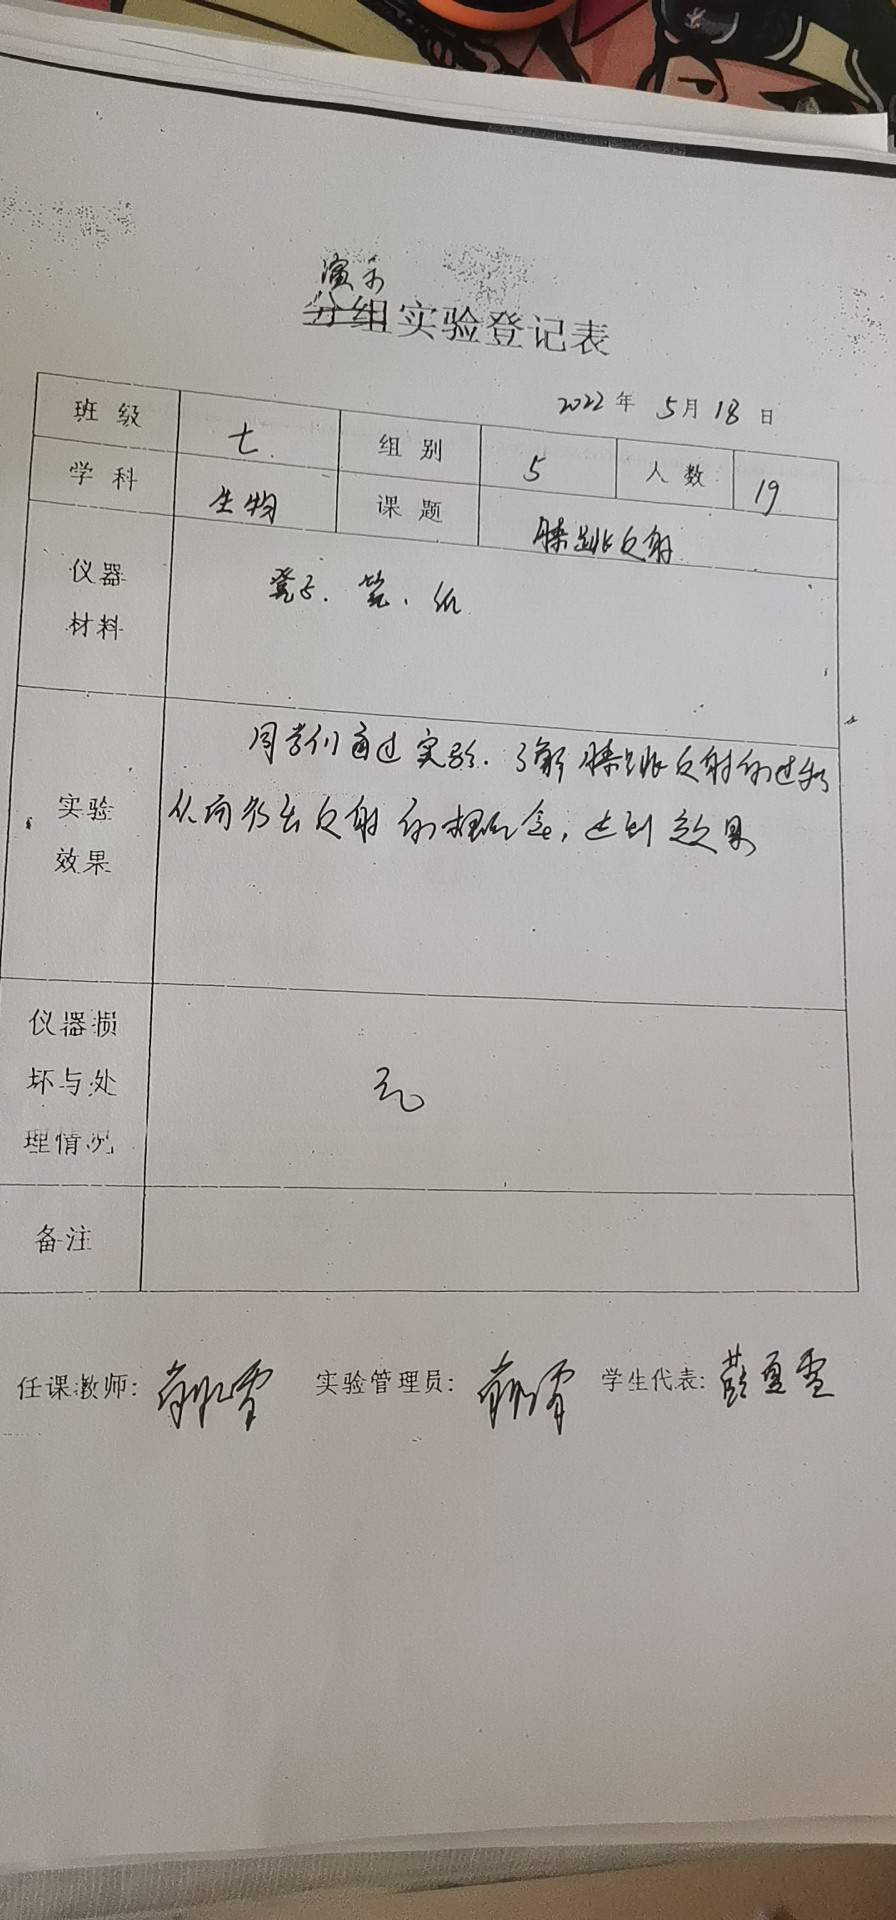 演示
分组实验登记表
2022年 5月18日
班级 七 组别 5 人数 19
学科 生物 课题 膝跳反射
仪器材料 凳子、笔、纸
实验效果 同学们通过实验、了解膝跳反射的过程
从而得出反射的概念,达到效果
仪器损坏与处理情况 无
备注
任课教师: 实验管理员: 学生代表: 薛夏雪